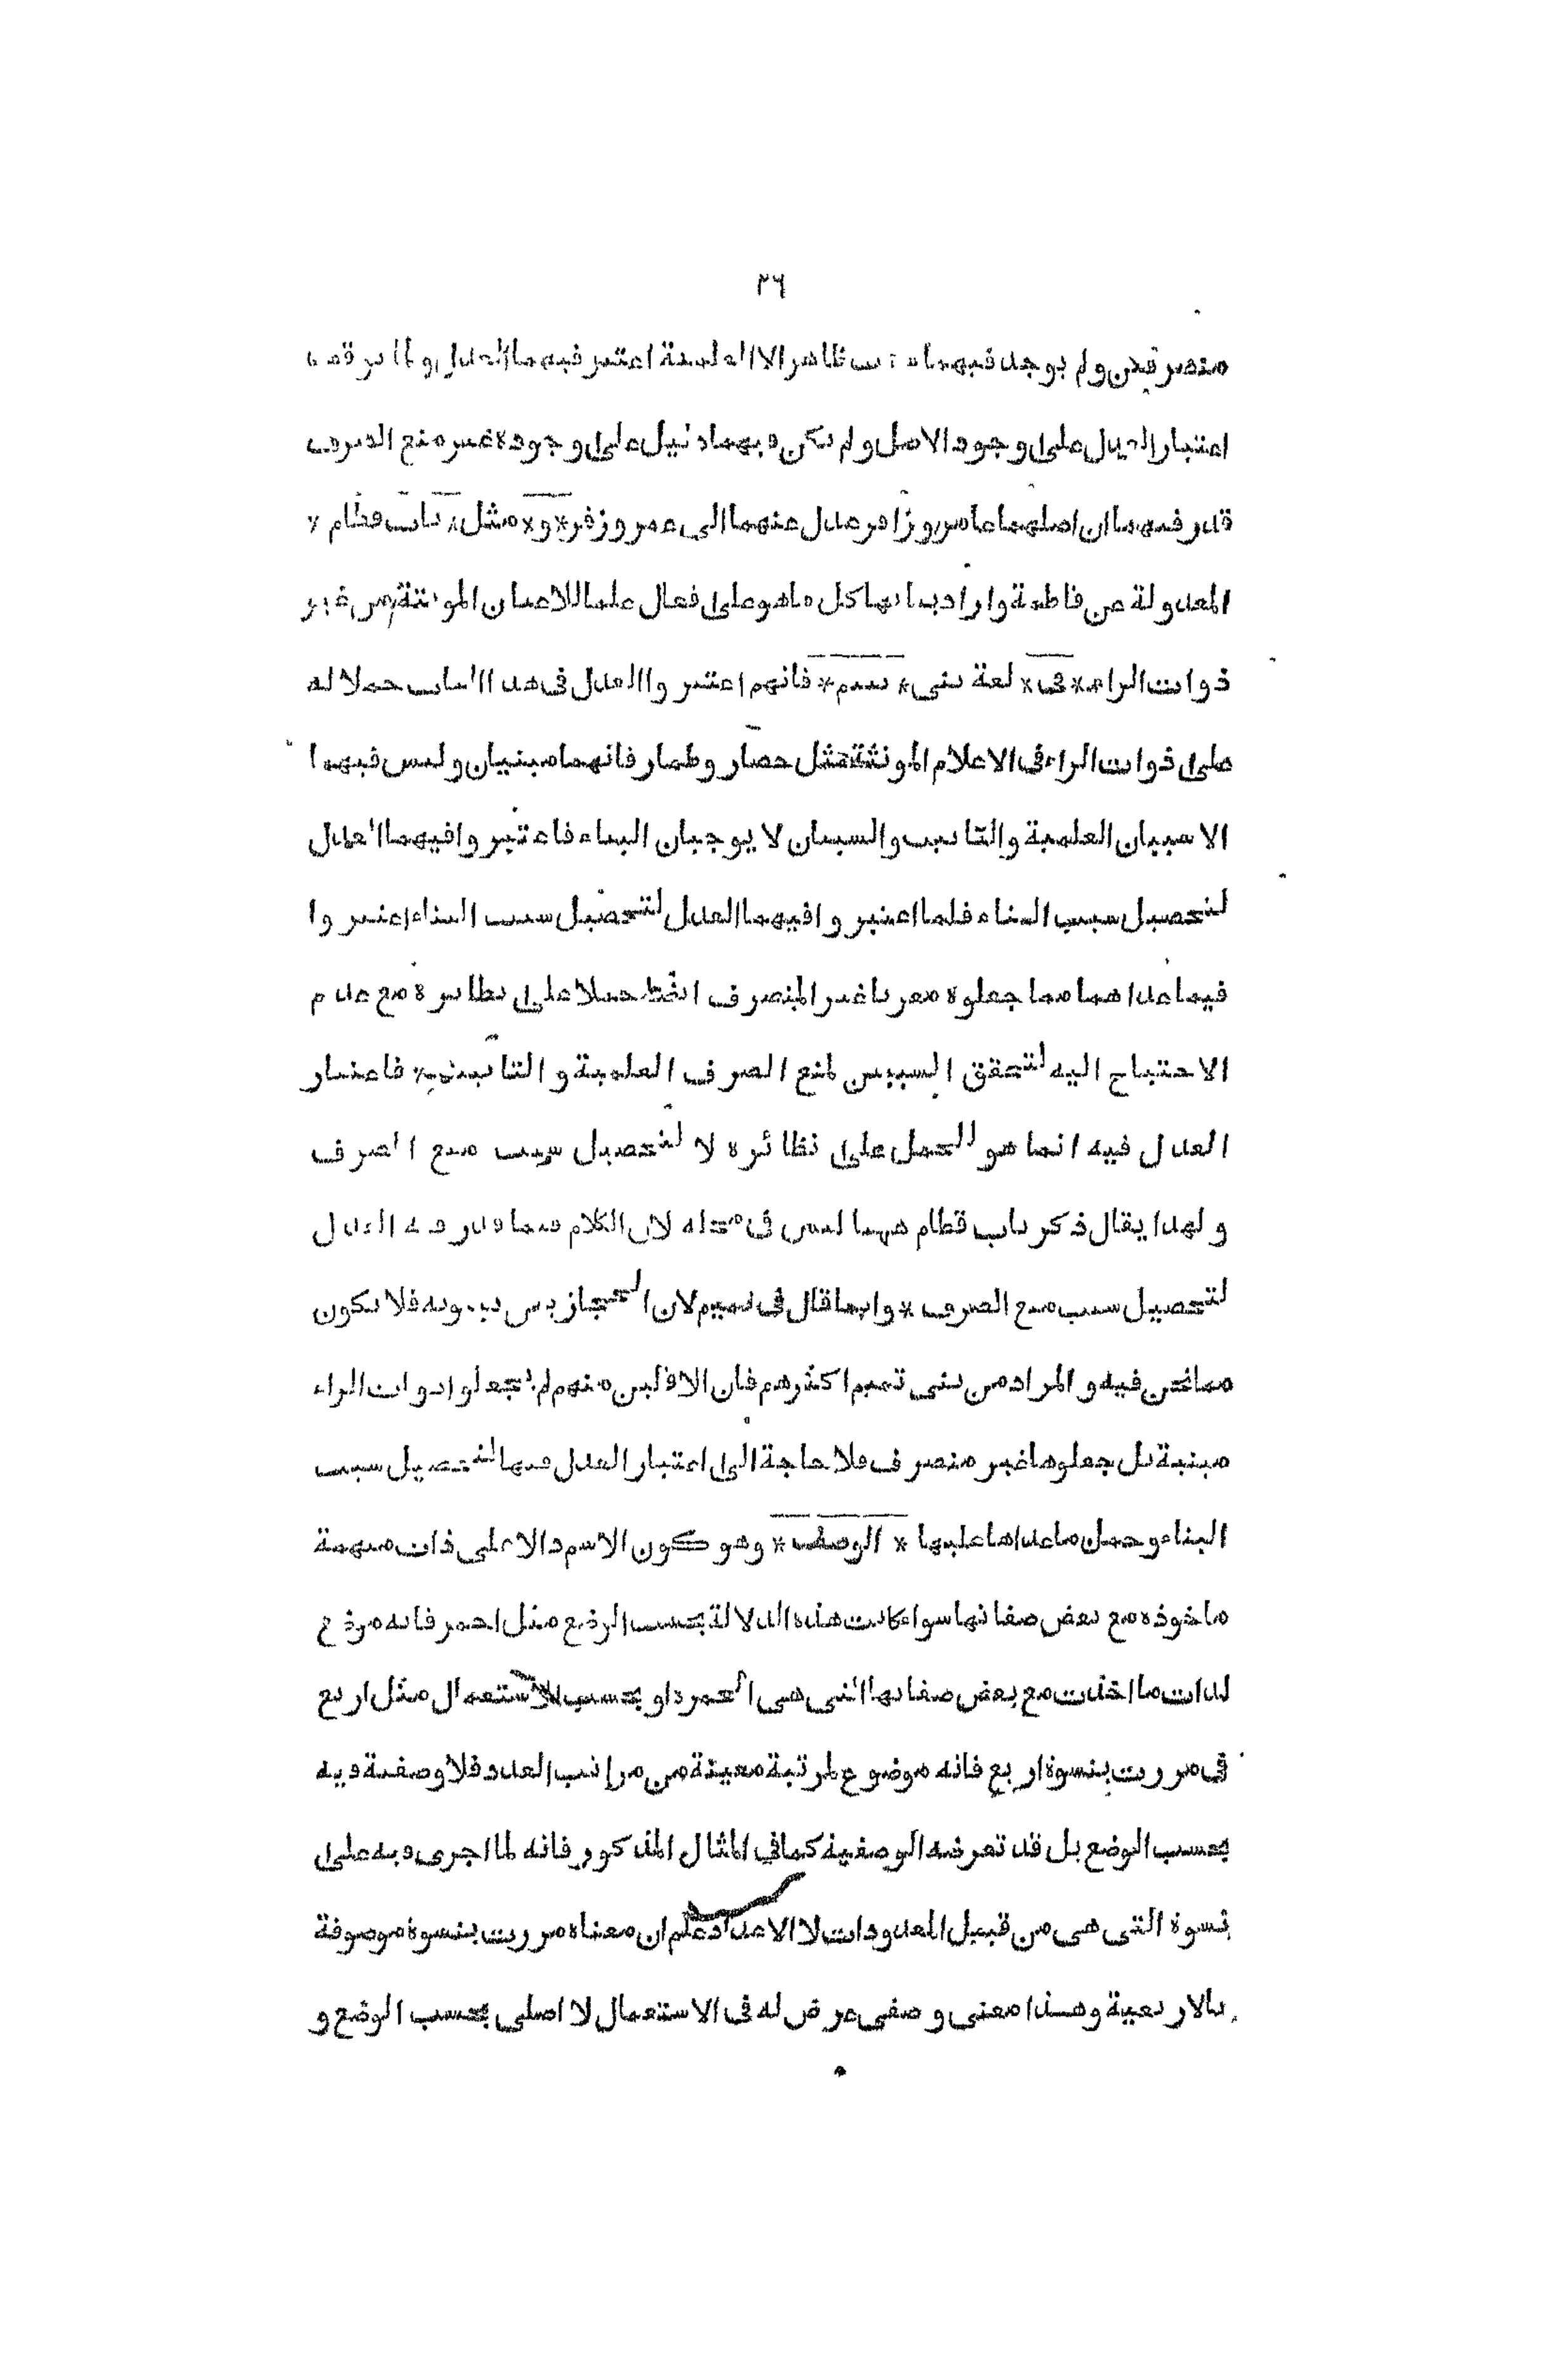 ٢٦
منصرفين ولم يوجد فيهما سبب ظاهر الا العلمية اعتبر فيهما العدل ولما توقف
اعتبار العدل على وجود الاصل ولم يكن فيهما دليل على وجوده غير منع الصرف
قدر فيهما ان اصلهما عامر وزافر عدل عنهما الى عمر وزفر * و * مثل * باب قطام *
المعدولة عن قاطمة واراد ببابها كل ما هو على فعال علما للاعيان المونثة من غير
ذوات الراء * فى * لغة بنى * تميم * فانهم اعتبر وا العدل فى هذا الباب حملا له
على ذوات الراء فى الاعلام المونثة مثل حضار وطمار فانهما مبنيان وليس فيهما
الا سببان العلمية والتانيث والسببان لا يوجبان البناء فاعتبر وا فيهما العدل
لتحصيل سبب البناء فلما اعتبر وا فيهما العدل لتحصيل سبب البناء اعتبر وا
فيما عداهما مما جعلوه معربا غير المنصرف ايضا حملا على نظايره مع عدم
الاحتياج اليه لتحقق السببين لمنع الصرف العلمية والتانيث * فاعتبار
العدل فيه انما هو للحمل على نظائره لا لتحصيل سبب منع الصرف
ولهذا يقال ذكر باب قطام ههنا ليس فى محله لان الكلام فيما قدر فيه العدل
لتحصيل سبب منع الصرف * وانما قال فى تميم لان الحجازيين يبنونه فلا يكون
مما نحن فيه والمراد من بنى تميم اكثرهم فان الاقلين منهم لم يجعلوا ذوات الراء
مبنية بل جعلوها غير منصرف فلا حاجة الى اعتبار العدل فيها لتحصيل سبب
البناء وحمل ما عداها عليها * الوصف * وهو كون الاسم دالا على ذات مبهمة
ماخوذه مع بعض صفاتها سواء كانت هذه الدلالة بحسب الوضع مثل احمر فانه موضوع
لذات ما اخذت مع بعض صفاتها التى هى الحمرة او بحسب الاستعمال مثل اربع
فى مررت بنسوة اربع فانه موضوع لمرتبة معينة من مراتب العدد فلا وصفية فيه
بحسب الوضع بل قد تعرضه الوصفية كما في المثال المذكور فانه لما اجرى فيه على
نسوة التى هى من قبيل المعدودات لا الاعداد علم ان معناه مررت بنسوة موصوفة
بالاربعية وهذا معنى وصفى عرض له فى الاستعمال لا اصلى بحسب الوضع و